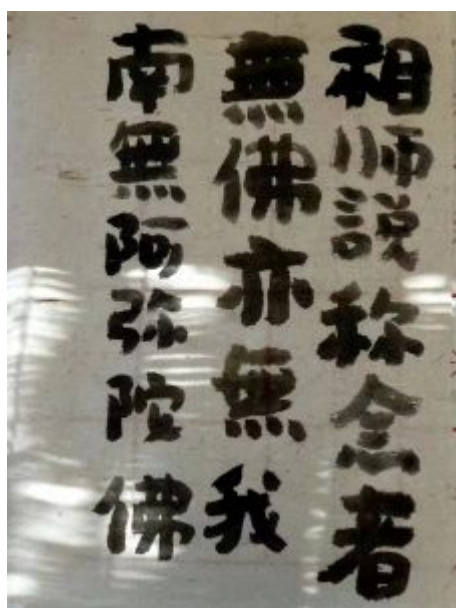 相师説称念者
無佛亦無我
南無阿弥陀佛